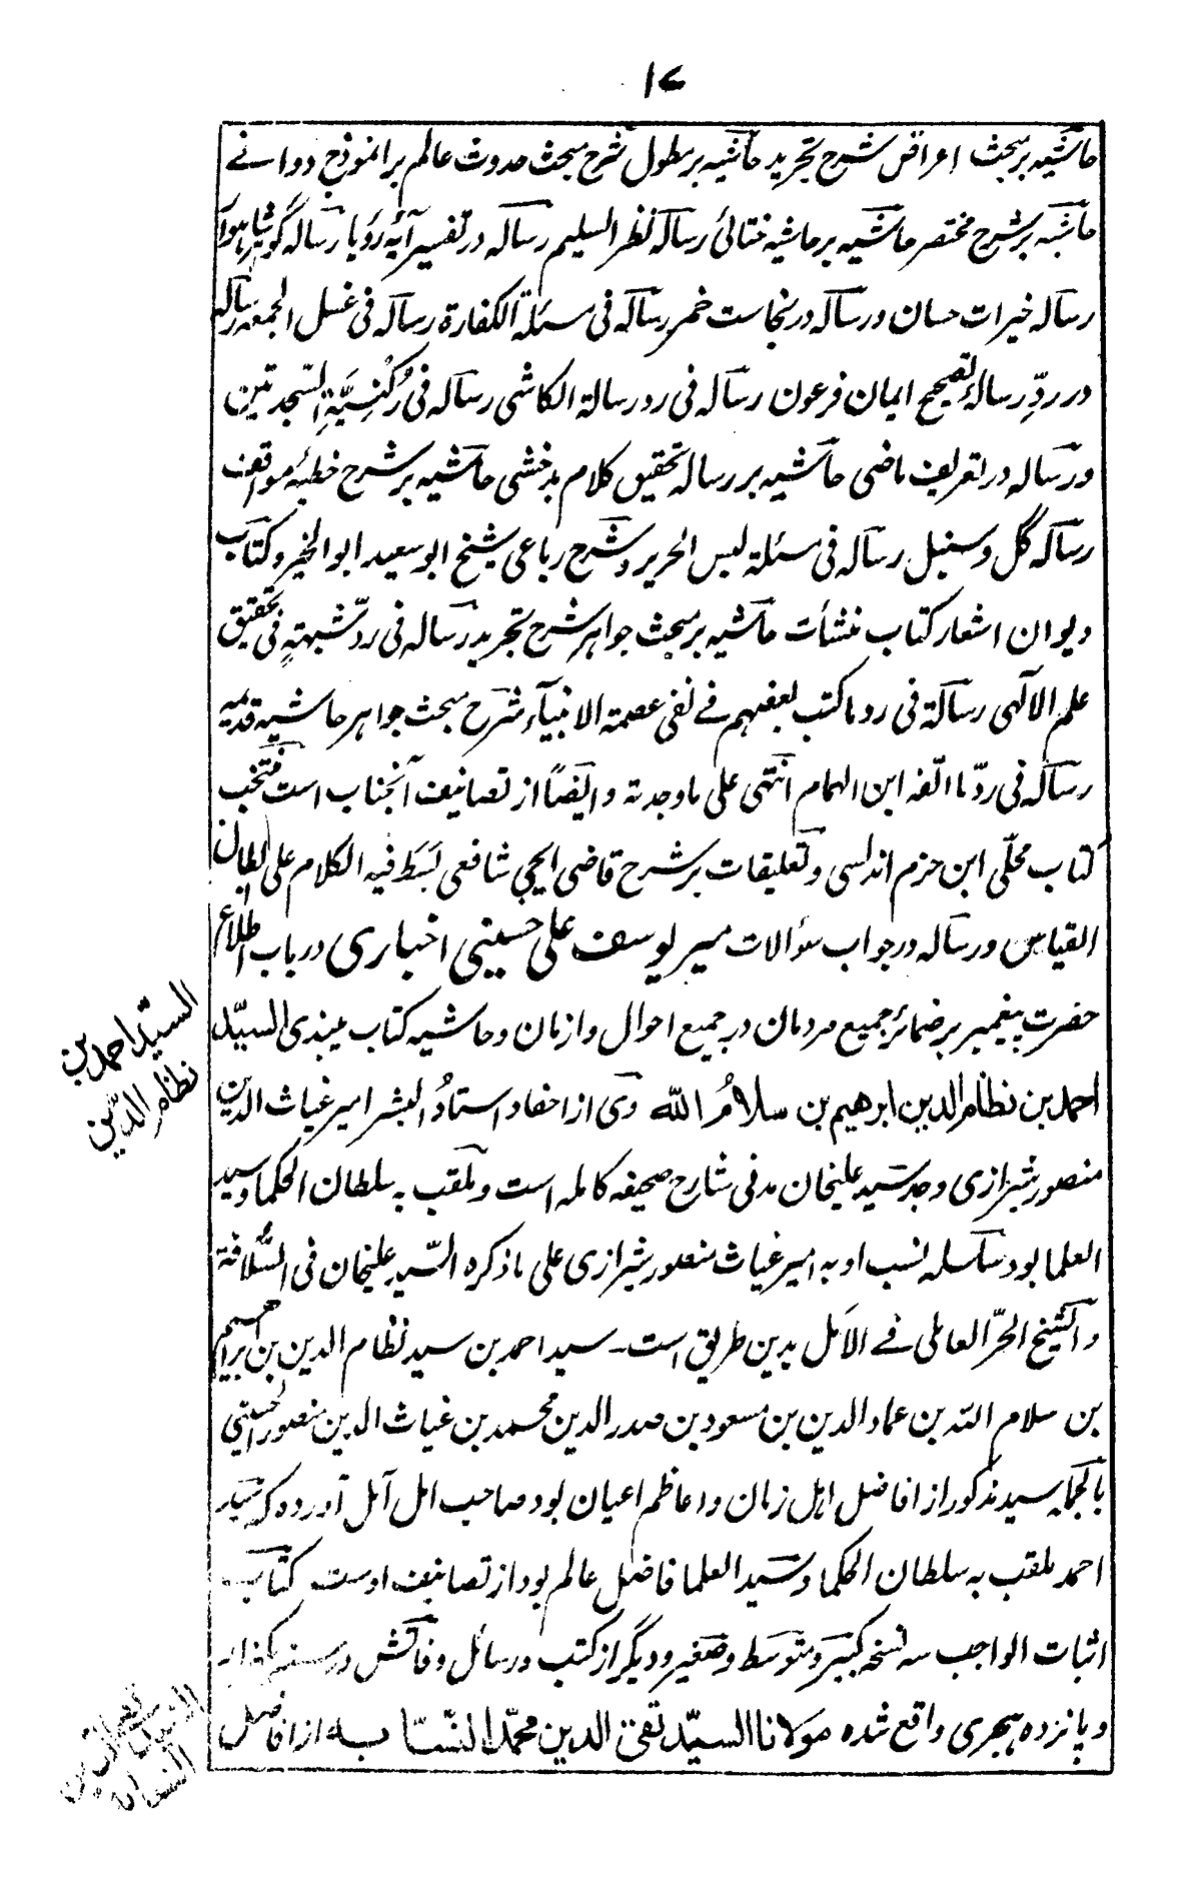 ۱۷
حاشیه بر مبحث اعراض شرح تجرید حاشیه بر مطول شرح مبحث حدوث عالم بر انموذج دوانے
حاشیه بر شرح مختصر حاشیه بر حاشیه ختائی رساله نظر السلیم رساله در تفسیر آیهٔ رؤیا رساله گوهر شاهوار
رساله خیرات حسان و رساله در نجاست خمر رساله فی مسئلة الکفارة رساله فی غسل الجمعه رساله
در ردّ رسالهٔ تصحیح ایمان فرعون رساله فی رد رسالة الکاشی رساله فی رُکنِیَّةِ السّجدتین
و رساله در تعریف ماضی حاشیه بر رساله تحقیق کلام بدخشی حاشیه بر شرح خطبهٔ مواقف
رساله گل و سنبل رساله فی مسئلة لبس الحریر و شرح رباعی شیخ ابو سعید ابو الخیر و کتاب
دیوان اشعار کتاب منشأت حاشیه بر مبحث جواهر شرح تجرید رساله فی ردّ شبهتهٍ فی تحقیق
علم الالٰهی رسالة فی رد ما کتب بعضهم فے نفی عصمة الانبیآء شرح مبحث جواهر حاشیه قدیمه
رساله فی ردّ ما الّفه ابن الهمام انتهی علی ما وجدته و ایضًا از تصانیف آنجناب است منتخب
کتاب محلّی ابن حزم اندلسی و تعلیقات بر شرح قاضی ایجی شافعی بَسَط فیه الکلام علی ابطال
القیاس و رساله در جواب سؤالات میر یوسف علی حسینی اخباری در باب اطلاع
حضرت پیغمبر بر ضمائر جمیع مردمان در جمیع احوال و ازمان و حاشیه کتاب میبذی السیّد
احمد بن نظام الدین ابرهیم بن سلامُ الله وی از احفاد استادُ البشر امیر غیاث الدین
منصور شیرازی و جد سَید علیخان مدنی شارح صحیفه کامله است و ملقب به سلطان الحکما و سید
العلما بود سلسله نسب او به امیر غیاث منصور شیرازی علی ما ذکره السّید علیخان فی السُّلافة
و الشیخ الحرّ العاملی فے الاَمل بدین طریق است۔ سید احمد بن سید نظام الدین بن ابراهیم
بن سلام اللّه بن عماد الدین بن مسعود بن صدر الدین محمد بن غیاث الدین منصور الحسینی
بالجمله سید مذکور از افاضل اهل زمان و اعاظم اعیان بود صاحب امل آمل آورده که سَید
احمد ملقب به سلطان الحکما و سَید العلما فاضل عالم بود از تصانیف اوست کتاب
اثبات الواجب سه نسخه کبیر و متوسط و صغیر و دیگر از کتب و رسائل وفاتش در سنه یکهزار
و پانزده هجری واقع شده مولانا السیّد تقی الدین محمّد النسّابه از افاضل
السیّد احمد بن
نظام الدّین
النسابه